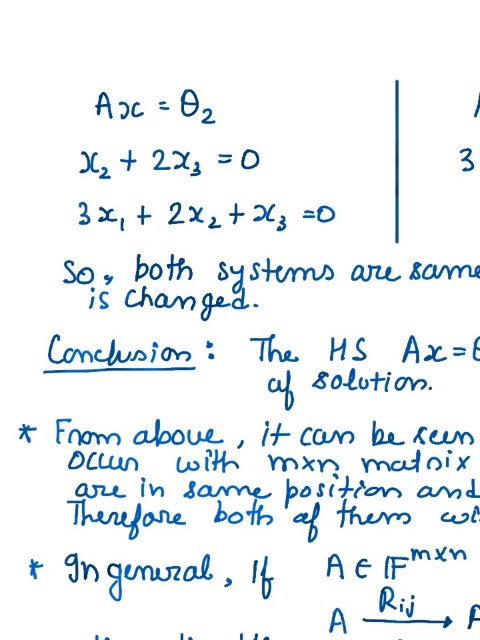 Ax = θ₂
x₂ + 2x₃ = 0
3
3x₁ + 2x₂ + x₃ = 0
So, both systems are same
is changed.
Conclusion : The HS Ax =
of solution.
* From above, it can be seen
occur with mxn matrix
are in same position and
Therefore both of them
* In general, If A ∈ F^{m×n}
A \xrightarrow{R_{ij}}